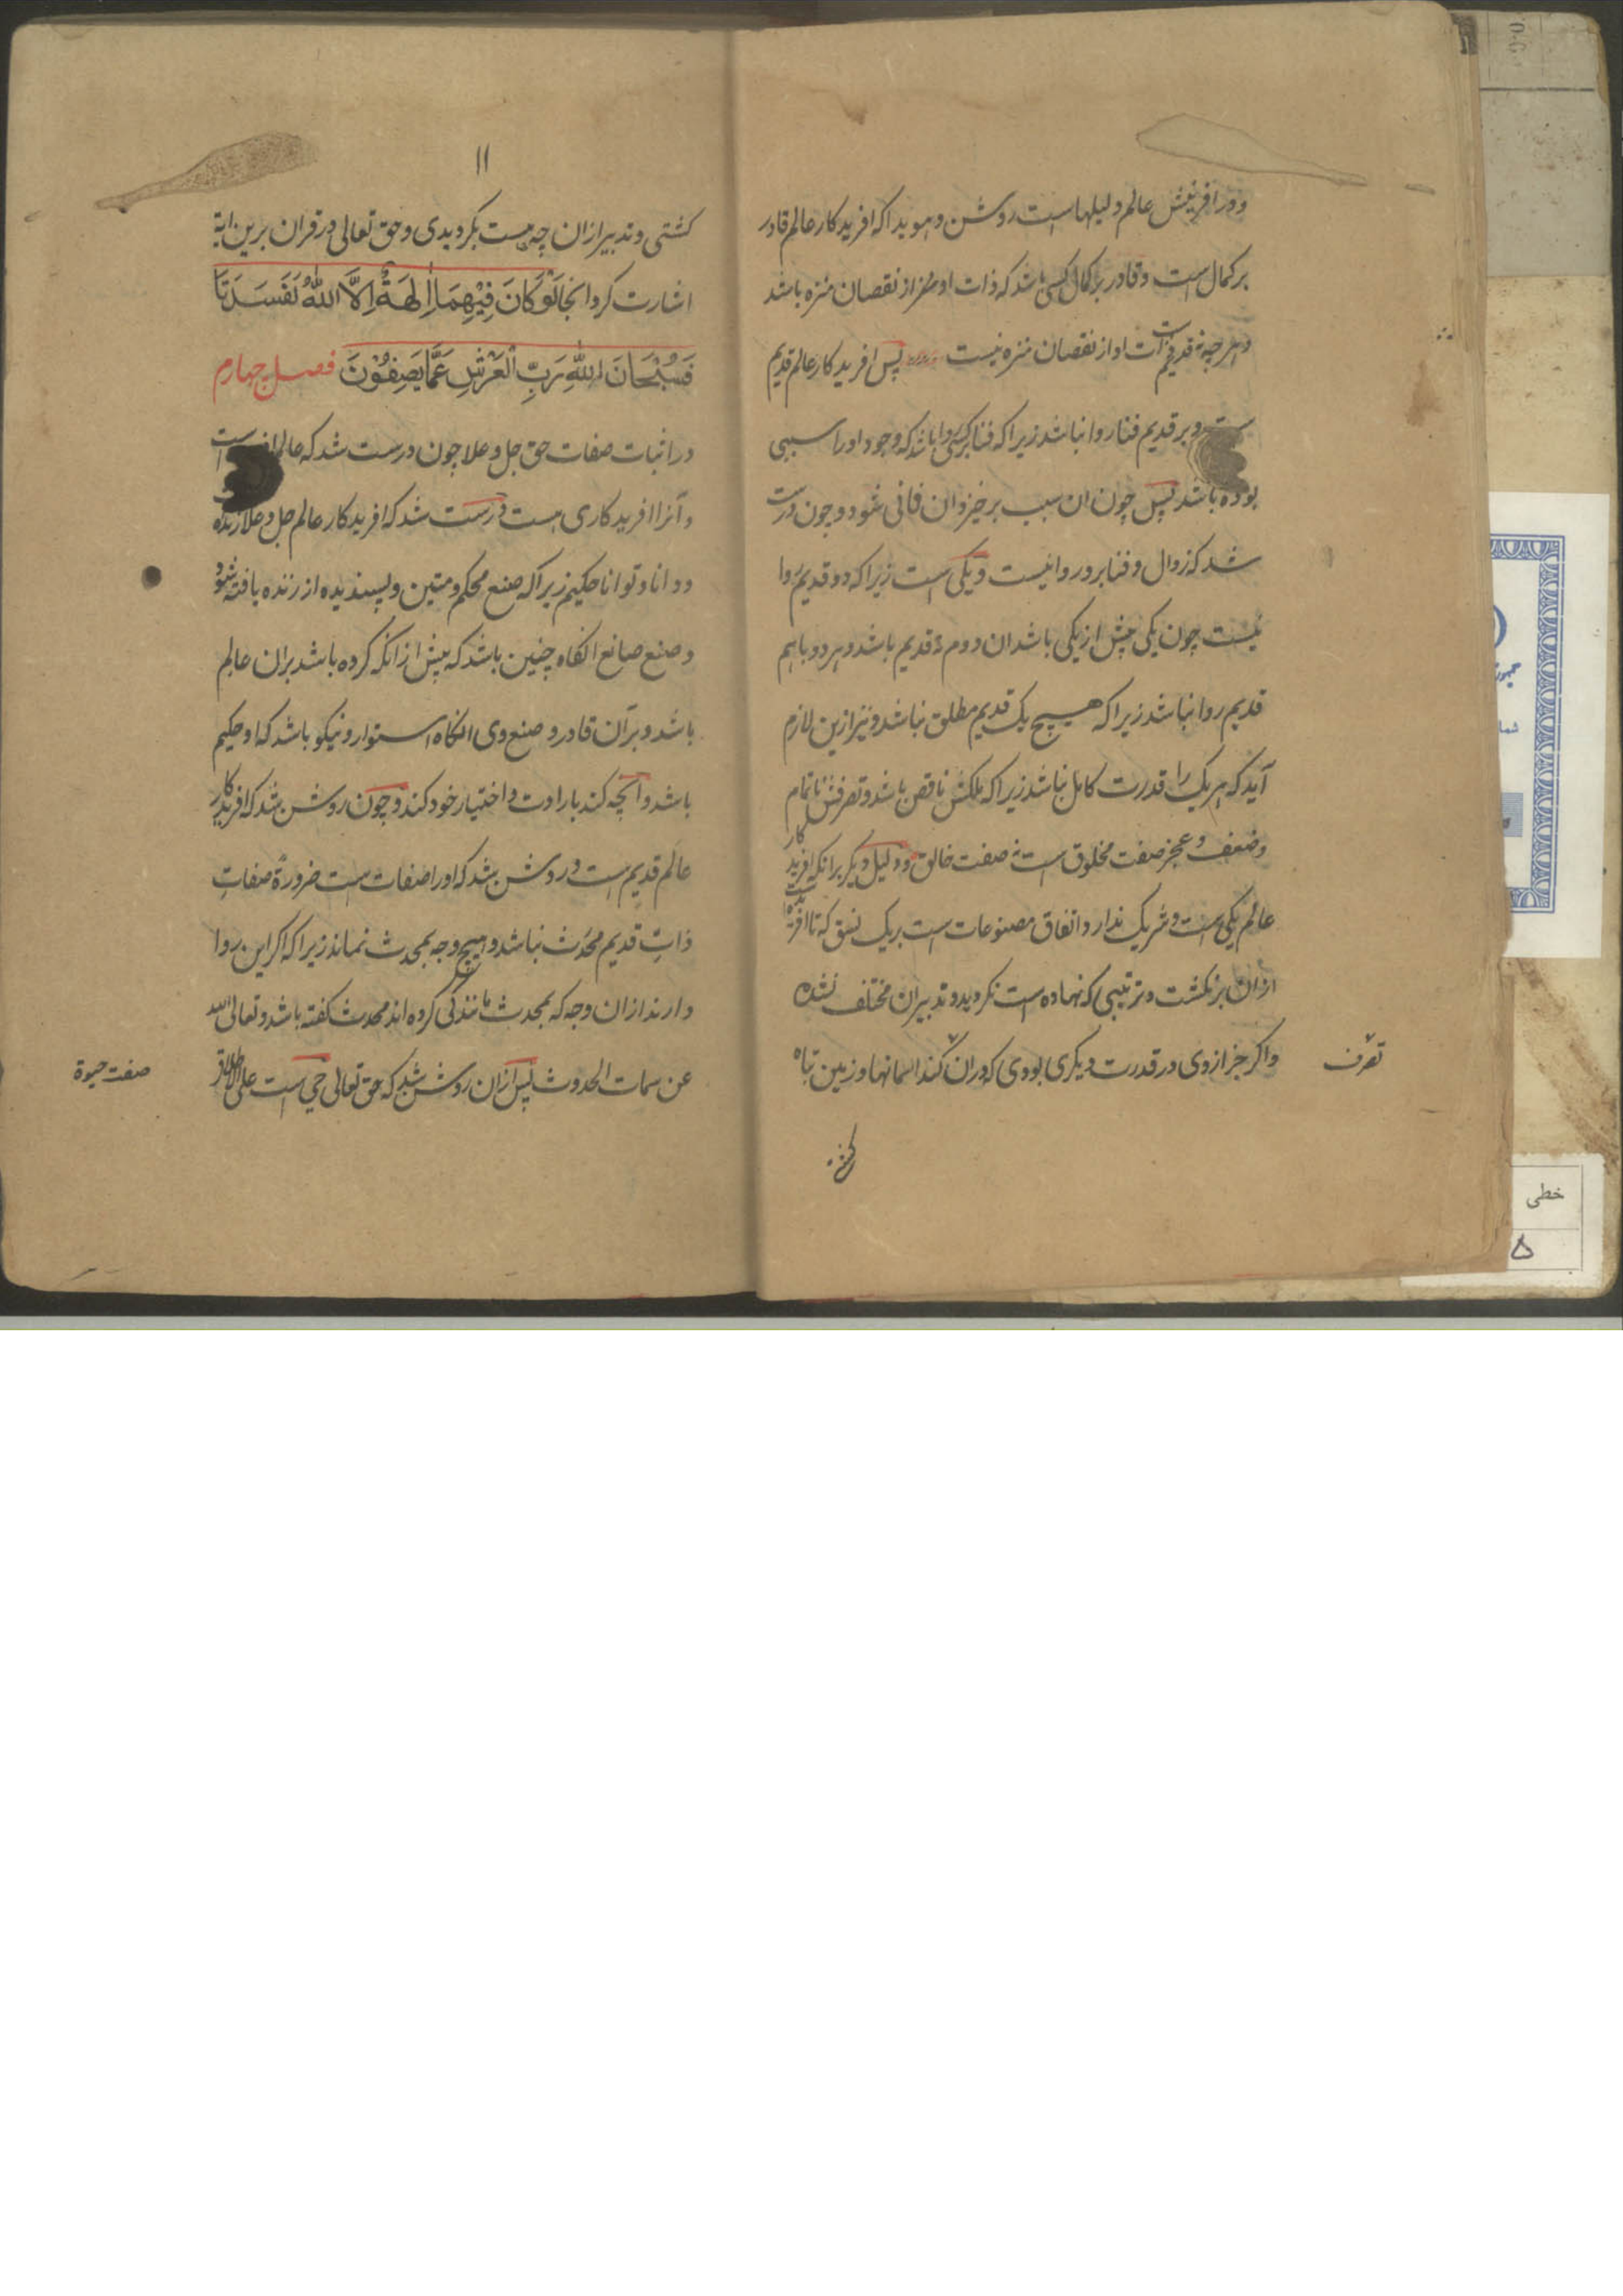 و در افرینش عالم دلیلها است روشن و هویدا که افریدکار عالم قادر
بر کمال است و قادر بر کمال کسی باشد که ذات او منزه از نقصان منزه باشد
و هرچه نه قدیم ذات او از نقصان منزه نیست پس افریدکار عالم قدیم
است و بر قدیم فنا روا نباشد زیرا که فنا بر کسی روا باشد که وجود او را سببی
بوده باشد پس چون ان سبب برخیزد ان فانی شود و چون درست
شد که زوال و فنا برو روا نیست و یکی است زیرا که دو قدیم روا
نیست چون یکی پیش از یکی باشد ان دوم نه قدیم باشد و هر دو باهم
قدیم روا نباشد زیرا که هیچ یک قدیم مطلق نباشد و نیز ازین لازم
آید که هر یک را قدرت کامل نباشد زیرا که ملکش ناقص باشد و تصرفش ناتمام
و ضعف و عجز صفت مخلوق است نه صفت خالق و دلیل دیکر برانکه افریدکار
عالم یکی است و شریک ندارد اتفاق مصنوعات است بر یک نسق که تا افریده است
ازان برنکشت و ترتیبی که نهاده است نکردید و تدبیران مختلف نشده
و اکر جز از وی در قدرت دیکری بودی که دران کند اسمانها و زمین تباه
تصرف
کشتی
۱۱
کشتی و تدبیر ازان چه هست بکردیدی و حق تعالی در قران برین ایة
اشارت کرد انجا لَوْ كَانَ فِيْهِمَا اٰلِهَةٌ اِلاَّ اللّٰهُ لَفَسَدَتَا
فَسُبْحَانَ اللّٰهِ رَبِّ الْعَرْشِ عَمَّا يَصِفُوْنَ فصل چهارم
در اثبات صفات حق جل و علا چون درست شد که عالم
و آنرا افریدکاری هست درست شد که افریدکار عالم جل و علا زنده
و دانا و توانا حکیم زیرا که صنع محکم و متین و پسندیده از زنده یافته شود
و صنع صانع انکاه چنین باشد که پیش ازانکه کرده باشد بران عالم
باشد و برآن قادر و صنع وی انکاه استوار و نیکو باشد که او حکیم
باشد و آنچه کند بارادت و اختیار خود کند و چون روشن شد که افریدکار
عالم قدیم است و روشن شد که او را صفات است ضرورةً صفاتِ
ذاتِ قدیم محدَث نباشد و بهیچ وجه بمحدث نماند زیرا که اکر این روا
دارند ازان وجه که بمحدث مانندکی کرده اند محدث کفته باشد و تعالی الله
عن سمات الحدوث پس ازان روشن شد که حق تعالی حی است علی الاطلاق
صفت حیوة
خطی
۵